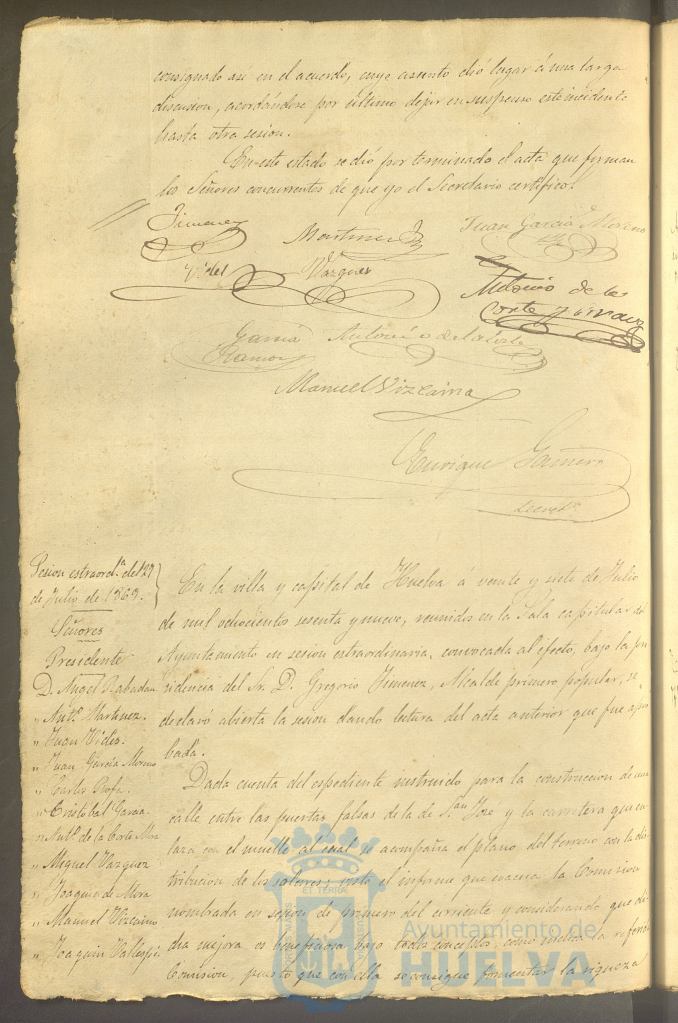 consignado asi en el acuerdo, cuyo asunto dió lugar á una larga
discusion, acordándose por último dejar en suspenso este incidente
hasta otra sesion.
En este estado se dió por terminado el acta que firman
los Señores concurrentes de que yo el Secretario certifico.
Jimenez
Martinez
Juan Garcia Moreno
Vides
Vazquez
Antonio de la
Corte y
Garcia
Ramon
Antonio de la Corte
Manuel Vizcaino
Enrique
Secret.º
Sesion estraord.ª del 27
de Julio de 1869.
Señores
Presidente
D. Angel Rabadan
" Ant.º Martinez.
" Juan Vides.
" Juan Garcia Moreno
" Carlos Rofa.
" Cristobal Garcia.
" Ant.º de la Corte Mra
" Miguel Vazquez
" Joaquin de Mora
" Manuel Vizcaino
" Joaquin Vallespi.
En la villa y capital de Huelva á veinte y siete de Julio
de mil ochocientos sesenta y nueve, reunidos en la Sala capitular del
Ayuntamiento en sesion estraordinaria, convocada al efecto, bajo la pre
sidencia del Sr. D. Gregorio Jimenez, Alcalde primero popular, se
declaró abierta la sesion dando lectura del acta anterior que fue apro
bada.
Dada cuenta del espediente instruido para la construccion de una
calle entre las puertas falsas de la de S.an José y la carretera que en
laza con el muelle al cual se acompaña el plano del terreno con la dis
tribucion de los solares; visto el informe que evacua la Comision
nombrada en sesion de primero del corriente y considerando que di
cha mejora es beneficiosa bajo todos conceptos, como indica la referida
Comision, puesto que con ella se consigue fomentar la riqueza
ET TERRA
Ayuntamiento de
HUELVA